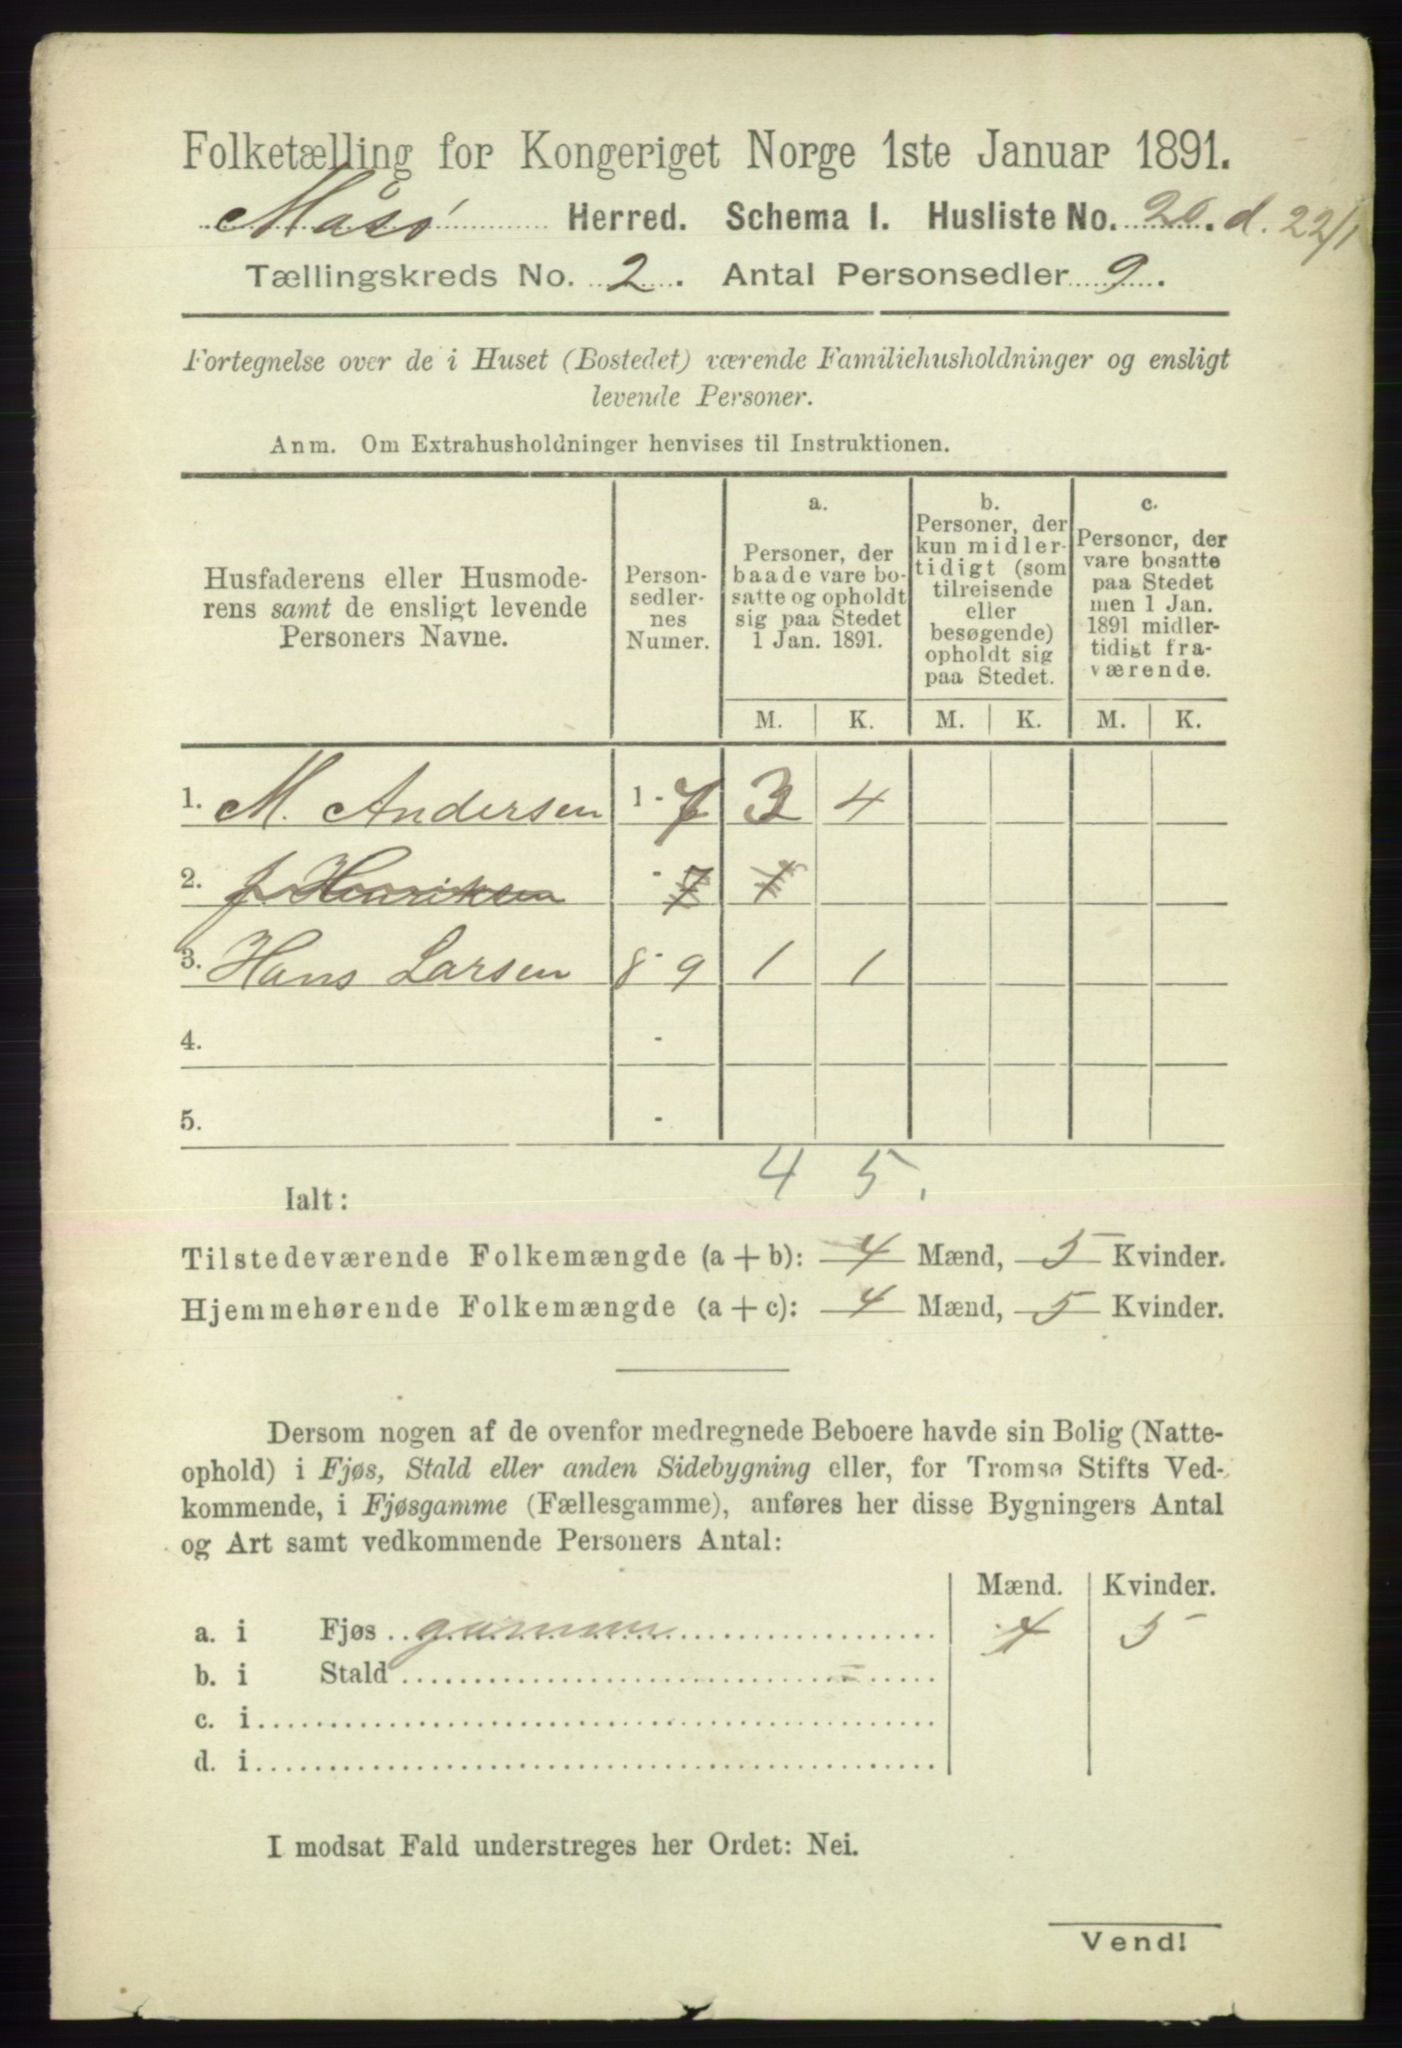 Folketælling for Kongeriget Norge 1ste Januar 1891.
Måsø Herred. Schema I. Husliste No. 20. d. 22/1
Tællingskreds No. 2. Antal Personsedler 9.
Fortegnelse over de i Huset (Bostedet) værende Familiehusholdninger og ensligt
levende Personer.
Anm. Om Extrahusholdninger henvises til Instruktionen.
Husfaderens eller Husmode-
rens samt de ensligt levende
Personers Navne.
Person-
sedler-
nes
Numer.
a.
Personer, der
baade vare bo-
satte og opholdt
sig paa Stedet
1 Jan. 1891.
b.
Personer, der
kun midler-
tidigt (som
tilreisende
eller
besøgende)
opholdt sig
paa Stedet.
c.
Personer, der
vare bosatte
paa Stedet
men 1 Jan.
1891 midler-
tidigt fra-
værende.
M. K. M. K. M. K.
1. M. Andersen 1 - 7 3 4
2. J Henriksen - 7 1
3. Hans Larsen 8 - 9 1 1
4. -
5. -
4 5.
Ialt:
Tilstedeværende Folkemængde (a + b): 4 Mænd, 5 Kvinder.
Hjemmehørende Folkemængde (a + c): 4 Mænd, 5 Kvinder.
Dersom nogen af de ovenfor medregnede Beboere havde sin Bolig (Natte-
ophold) i Fjøs, Stald eller anden Sidebygning eller, for Tromsø Stifts Ved-
kommende, i Fjøsgamme (Fællesgamme), anføres her disse Bygningers Antal
og Art samt vedkommende Personers Antal:
Mænd. Kvinder.
a. i Fjøs gamme 4 5
b. i Stald
c. i
d. i
I modsat Fald understreges her Ordet: Nei.
Vend!